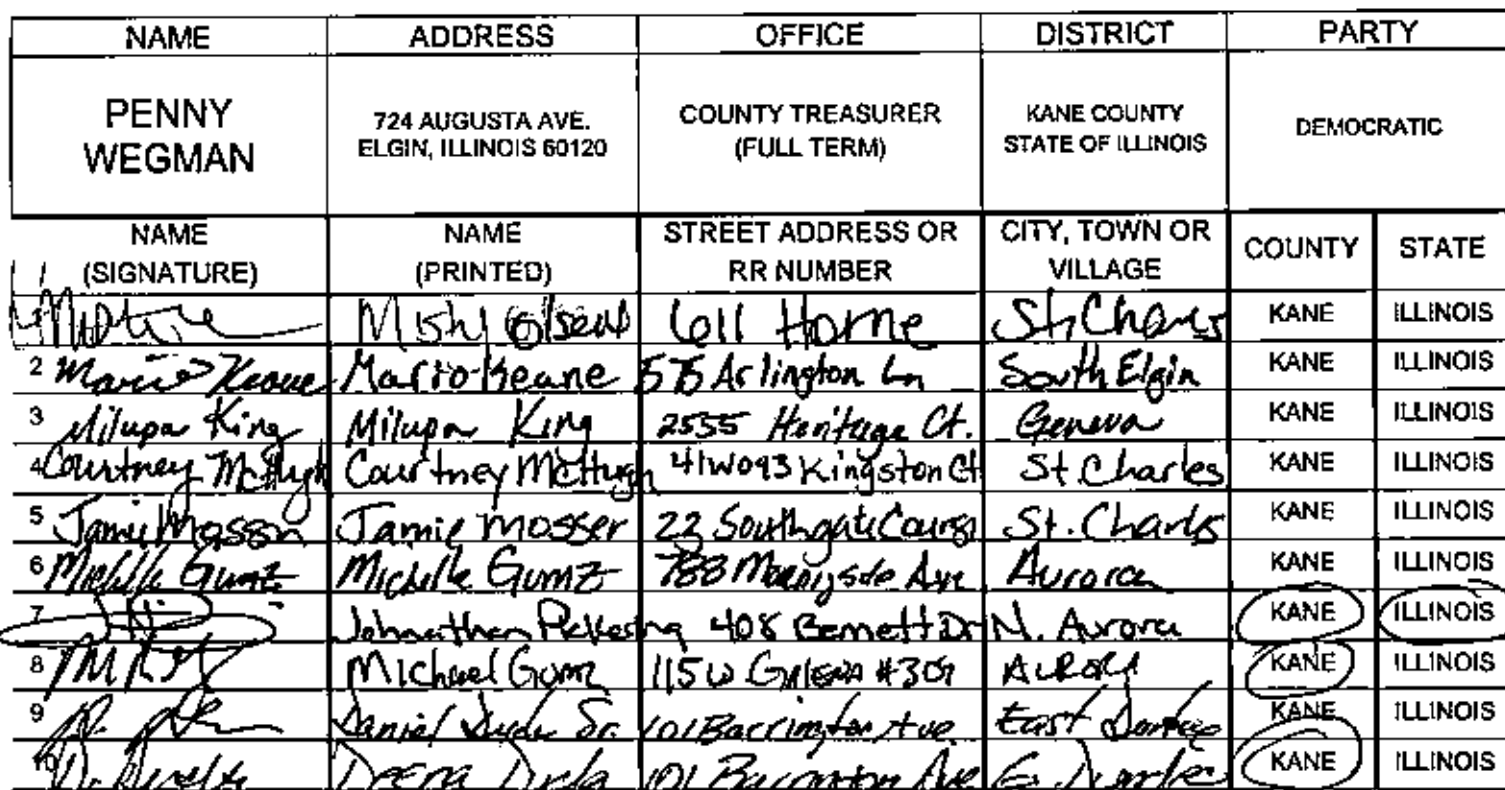 NAME ADDRESS OFFICE DISTRICT PARTY
PENNY WEGMAN 724 AUGUSTA AVE. ELGIN, ILLINOIS 60120 COUNTY TREASURER (FULL TERM) KANE COUNTY STATE OF ILLINOIS DEMOCRATIC
NAME (SIGNATURE) NAME (PRINTED) STREET ADDRESS OR RR NUMBER CITY, TOWN OR VILLAGE COUNTY STATE
611 Horne St. Charles KANE ILLINOIS
2 Mario Keane Mario Keane Arlington Ln South Elgin KANE ILLINOIS
3 Milupa King Milupa King 2555 Heritage Ct. Geneva KANE ILLINOIS
4 Courtney McHugh Courtney McHugh 41W093 Kingston Ct St Charles KANE ILLINOIS
5 Jamie Jamie Mosser 22 Southgate Course St. Charles KANE ILLINOIS
6 Michelle Gumz Michelle Gumz 788 Morningside Ave Aurora KANE ILLINOIS
7 Johnathan Pickering 408 Bennett Dr N. Aurora KANE ILLINOIS
8 Michael Gumz 115 W Galena #309 Aurora KANE ILLINOIS
9 Daniel Sr. 101 Barrington Ave East Dundee KANE ILLINOIS
10 Deena 101 Barrington Ave E. Dundee KANE ILLINOIS